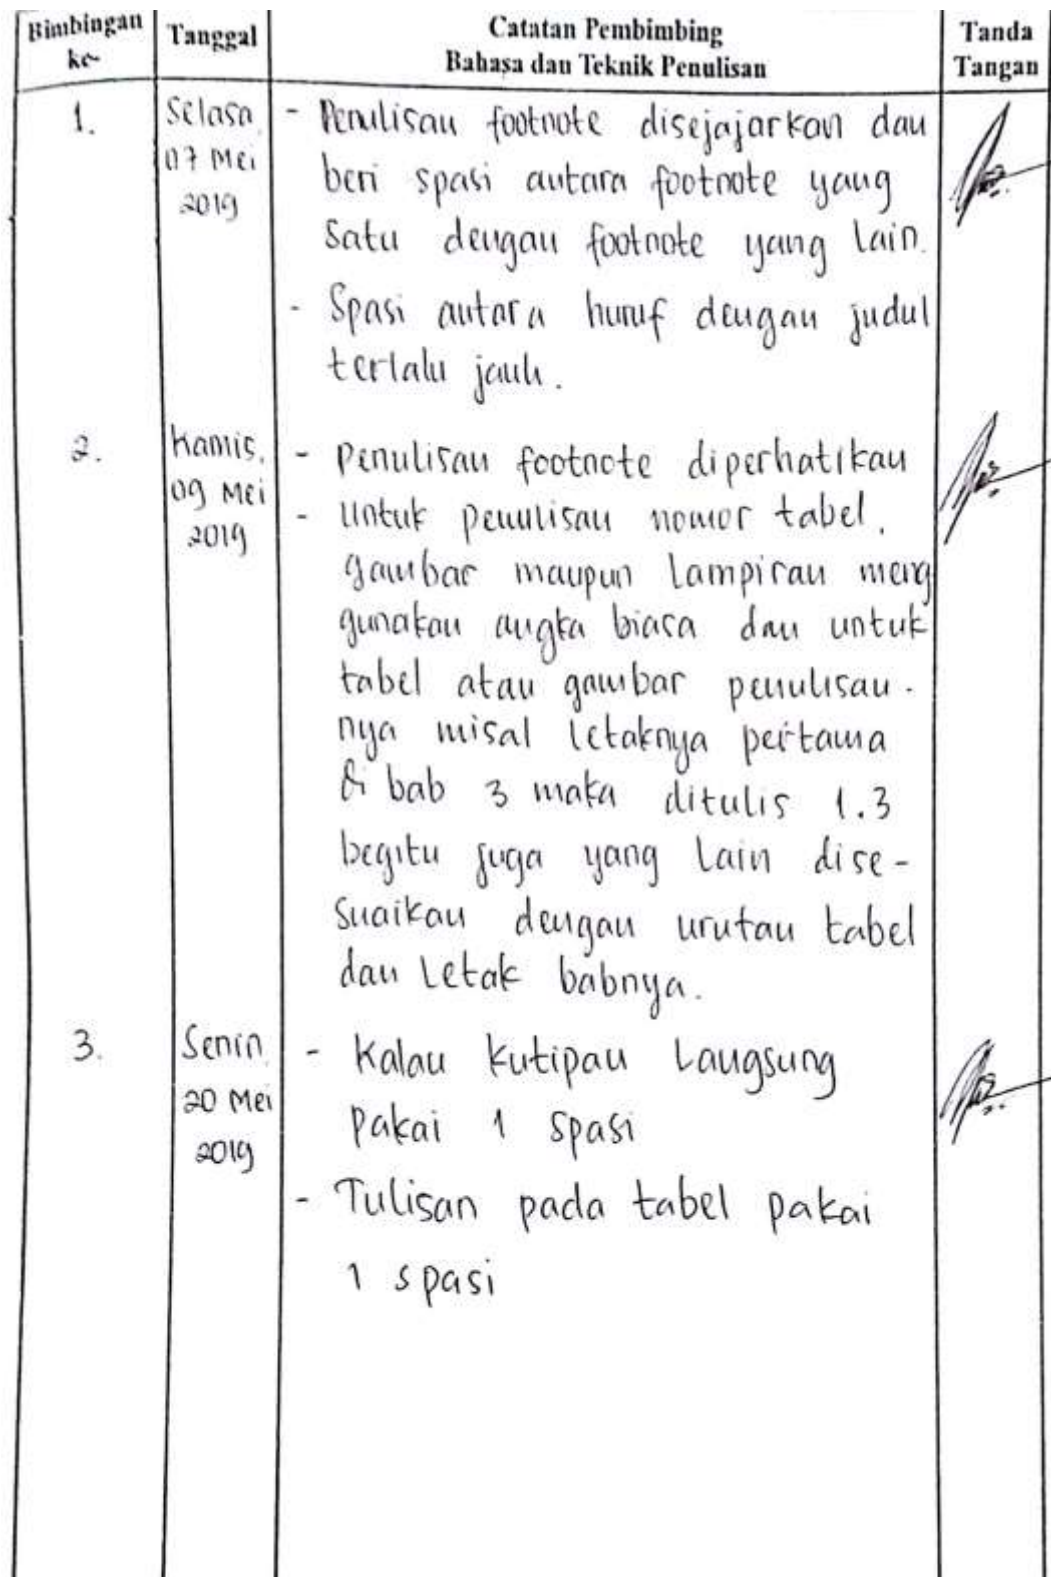 Bimbingan ke-
Tanggal
Catatan Pembimbing
Bahasa dan Teknik Penulisan
Tanda
Tangan
1.
Selasa,
07 Mei
2019
- Penulisan footnote disejajarkan dan
beri spasi antara footnote yang
Satu dengan footnote yang lain.
- Spasi antara huruf dengan judul
terlalu jauh.
2.
Kamis,
09 Mei
2019
- Penulisan footnote diperhatikan
- Untuk penulisan nomor tabel,
gambar maupun Lampiran meng
gunakan angka biasa dan untuk
tabel atau gambar penulisan-
nya misal letaknya pertama
di bab 3 maka ditulis 1.3
begitu juga yang lain dise-
suaikan dengan urutan tabel
dan letak babnya.
3.
Senin,
20 Mei
2019
- Kalau Kutipan Langsung
Pakai 1 Spasi
- Tulisan pada tabel pakai
1 spasi